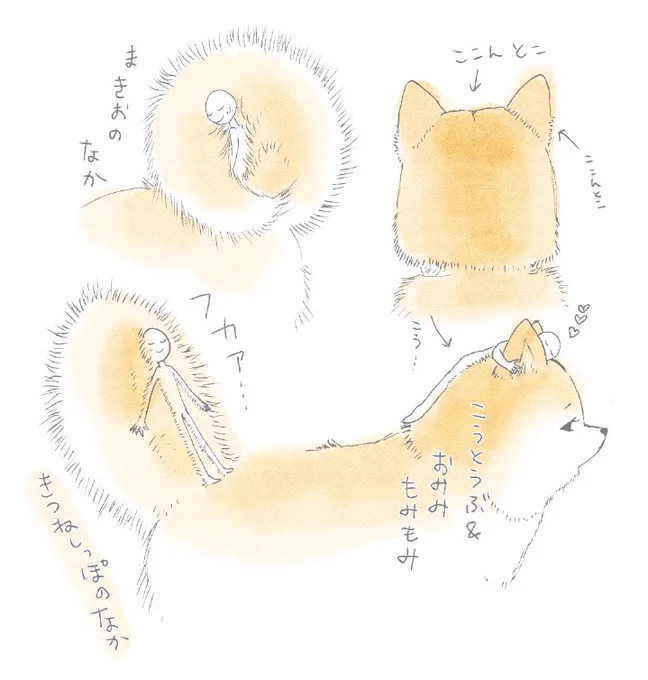 まきおの
なか
ここんとこ
ここんとこ
こう…
フカァ…
こうとうぶ&
おみみ
もみもみ
きつねしっぽのなか